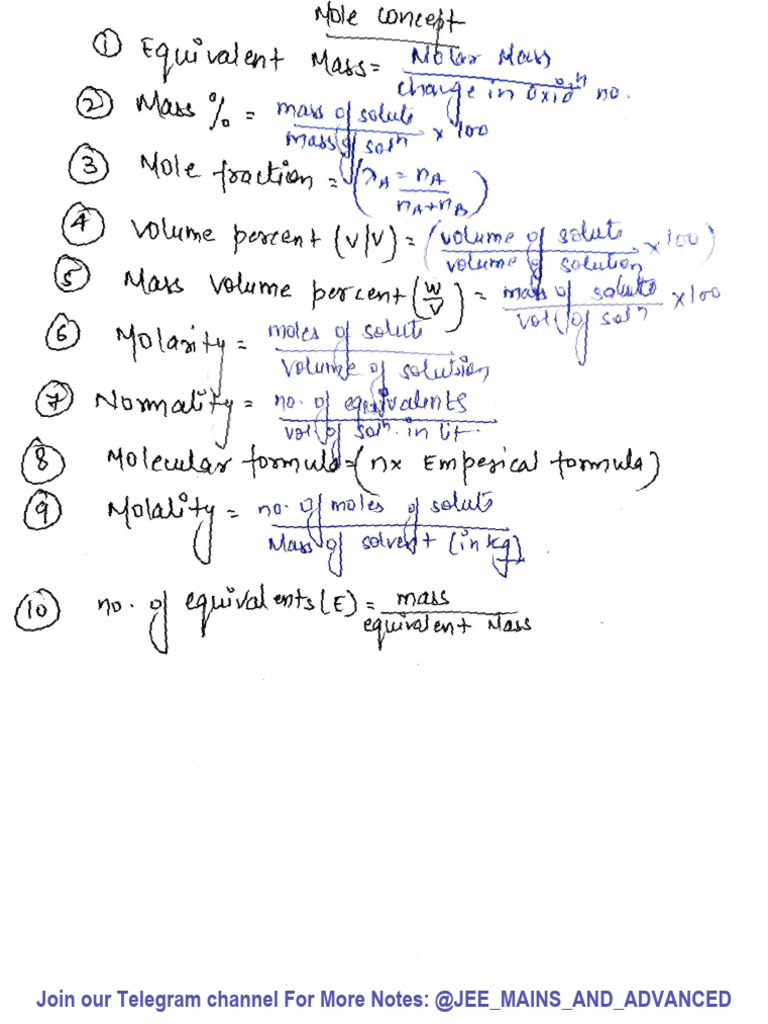 Mole concept
① Equivalent Mass = Molar Mass / change in oxidn no.
② Mass % = mass of solute / mass of soln × 100
③ Mole fraction = (xA = nA / nA+nB)
④ Volume percent (V/V) = (volume of solute / volume of solution × 100)
⑤ Mass volume percent (W/V) = mass of solute / vol. of soln × 100
⑥ Molarity = moles of solute / volume of solution
⑦ Normality = no. of equivalents / vol. of soln. in lit.
⑧ Molecular formula = (n× Emperical formula)
⑨ Molality = no. of moles of solute / Mass of solvent (in kg)
⑩ no. of equivalents (E) = mass / equivalent Mass
Join our Telegram channel For More Notes: @JEE_MAINS_AND_ADVANCED